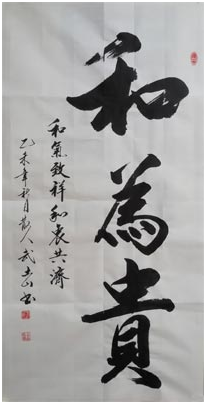 和為貴
和氣致祥和衷共濟
乙未年秋月散人武山書